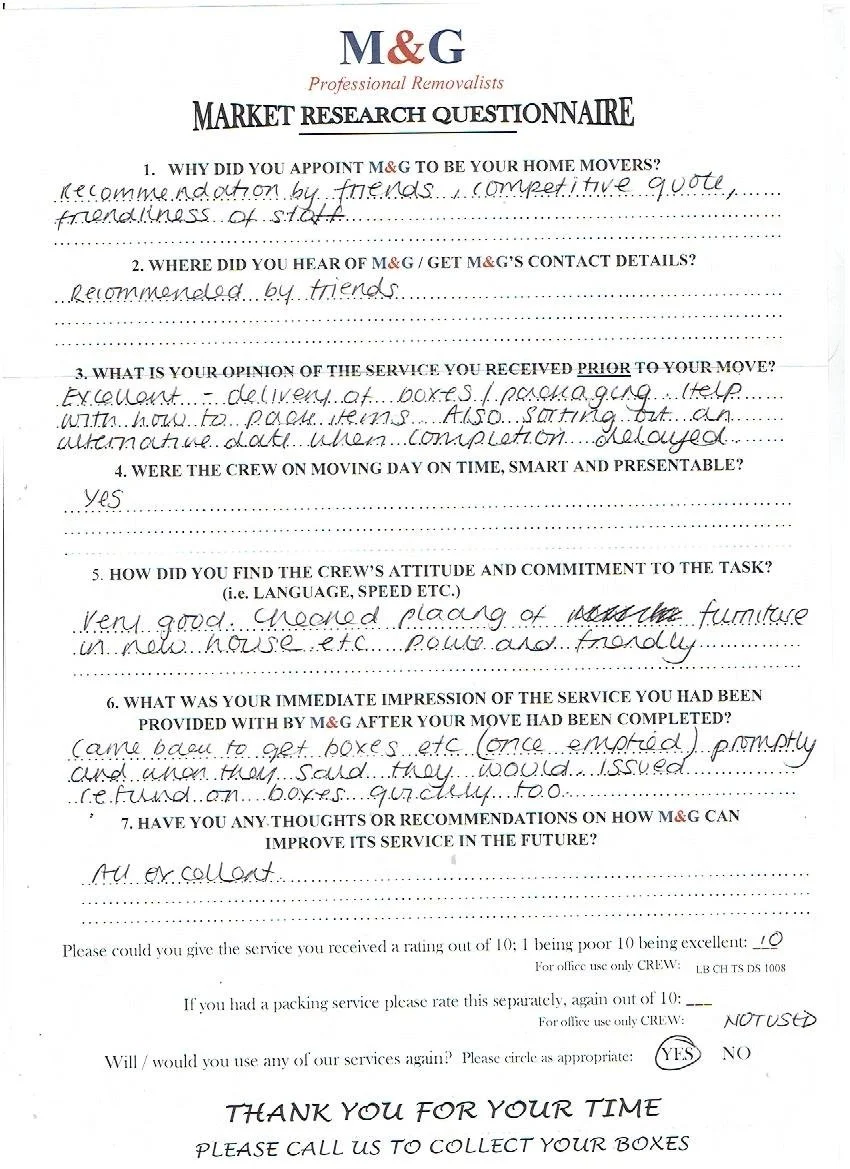 M&G
Professional Removalists
MARKET RESEARCH QUESTIONNAIRE
1. WHY DID YOU APPOINT M&G TO BE YOUR HOME MOVERS?
Recommendation by friends, competitive quote,
friendliness of staff
2. WHERE DID YOU HEAR OF M&G / GET M&G'S CONTACT DETAILS?
Recommended by friends
3. WHAT IS YOUR OPINION OF THE SERVICE YOU RECEIVED PRIOR TO YOUR MOVE?
Excellent - delivery of boxes / packaging. Help
with how to pack items. Also sorting out an
alternative date when completion delayed
4. WERE THE CREW ON MOVING DAY ON TIME, SMART AND PRESENTABLE?
Yes
5. HOW DID YOU FIND THE CREW'S ATTITUDE AND COMMITMENT TO THE TASK?
(i.e. LANGUAGE, SPEED ETC.)
Very good. Checked placing of furniture
in new house etc. Polite and friendly
6. WHAT WAS YOUR IMMEDIATE IMPRESSION OF THE SERVICE YOU HAD BEEN
PROVIDED WITH BY M&G AFTER YOUR MOVE HAD BEEN COMPLETED?
Came back to get boxes etc (once emptied) promptly
and when they said they would. Issued
refund on boxes quickly too.
7. HAVE YOU ANY THOUGHTS OR RECOMMENDATIONS ON HOW M&G CAN
IMPROVE ITS SERVICE IN THE FUTURE?
All excellent.
Please could you give the service you received a rating out of 10; 1 being poor 10 being excellent: 10
For office use only CREW: LB CH TS DS 1008
If you had a packing service please rate this separately, again out of 10: ___
For office use only CREW: NOT USED
Will / would you use any of our services again? Please circle as appropriate: YES NO
THANK YOU FOR YOUR TIME
PLEASE CALL US TO COLLECT YOUR BOXES